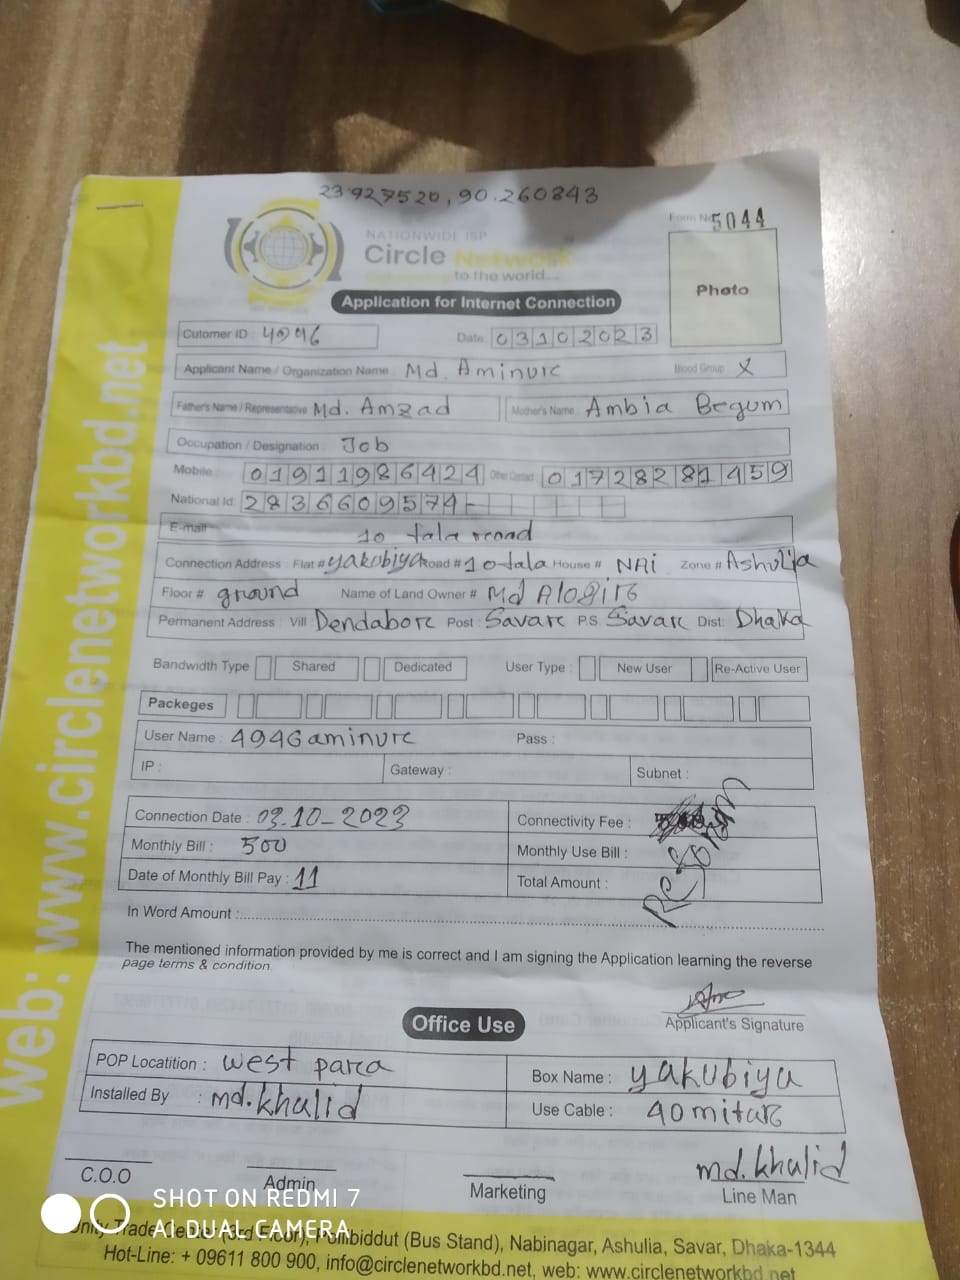 23.927520, 90.260843
Form No 5044
NATIONWIDE ISP
Circle Network
to the world...
Photo
Application for Internet Connection
Cutomer ID : Date: 03102023
Applicant Name / Organization Name : Md. Aminur Blood Group : X
Father's Name / Representative Md. Amzad Mother's Name : Ambia Begum
Occupation / Designation : Job
Mobile : 01911986424 Other Contact : 01728281459
National Id: 2836609574-
E-mail 10 tala road
Connection Address : Flat # yakubiya Road # 10-tala House # NAi Zone # Ashulia
Floor # ground Name of Land Owner # Md
Permanent Address : Vill: Dendabor Post : Savar P.S. Savar Dist: Dhaka
Bandwidth Type Shared Dedicated User Type : New User Re-Active User
Packeges
User Name : 4946aminur Pass :
IP : Gateway : Subnet :
Connection Date : 03.10-2023 Connectivity Fee :
Monthly Bill : 500 Monthly Use Bill :
Date of Monthly Bill Pay : 11 Total Amount :
In Word Amount :
The mentioned information provided by me is correct and I am signing the Application learning the reverse
page terms & condition.
Applicant's Signature
Office Use
POP Locatition : west para Box Name : yakubiya
Installed By : md.khalid Use Cable : 40 mitar
md.khalid
C.O.O Admin Marketing Line Man
web: www.circlenetworkbd.net
(Bus Stand), Nabinagar, Ashulia, Savar, Dhaka-1344
Hot-Line: + 09611 800 900, info@circlenetworkbd.net, web: www.circlenetworkbd.net
SHOT ON REDMI 7
AI DUAL CAMERA